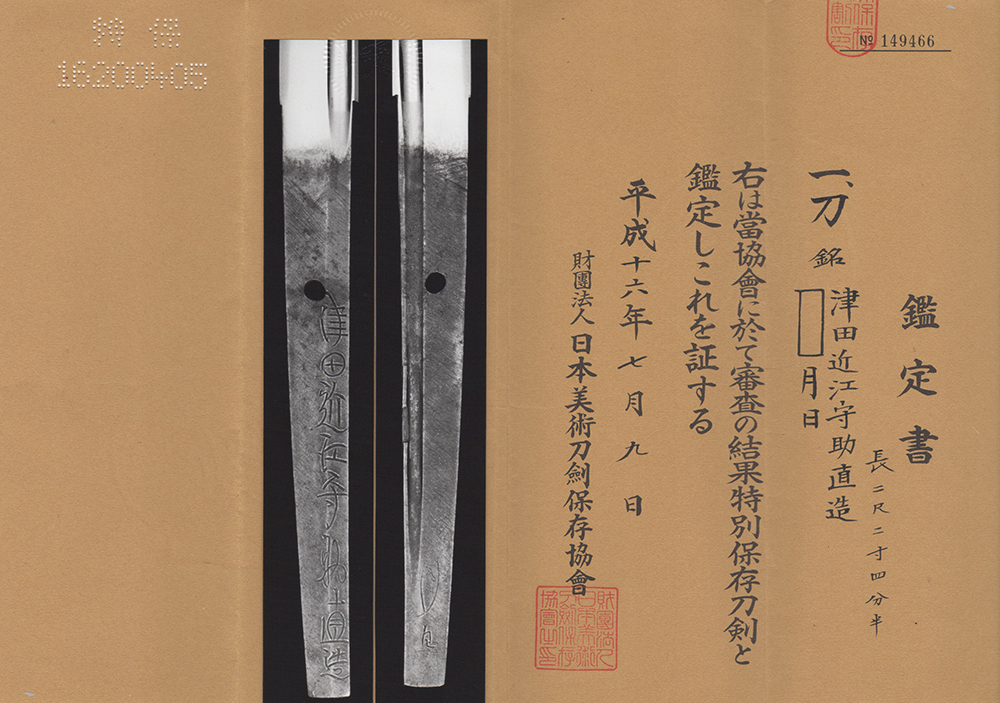 特保
16200405
№ 149466
鑑定書
長二尺二寸四分半
一、刀 銘 津田近江守助直造
月日
右は當協會に於て審査の結果特別保存刀剣と
鑑定しこれを証する
平成十六年七月九日
財團法人 日本美術刀劍保存協會
津田近江守助直造